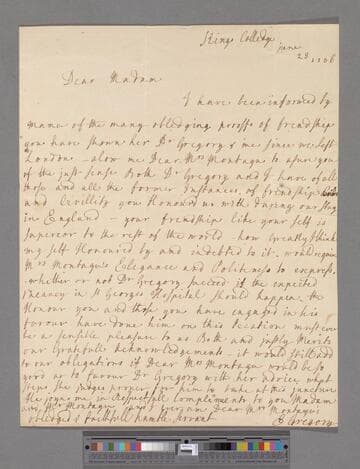 Kings Colledge
june
23 1756
Dear Madam
I have been informed by
many of the many obledging prooffs of frendship
you have shown her Dr Gregory & me since we Left
London - alow me Dear Mrs Montagu to assure you
of the just sense Both Dr Gregory and I have of all
those and all the former Instances of frendship
and Sevillity you Honoured us with during our stay
in England - your frendship like your self is
supereor to the rest of the world - how Greatly I think
my self Honoured by and indebted to it - would require
Mrs Montagus Elegance and Politeness to express.
whether or not Dr Gregory succeed if the expected
vacancy in St Georges Hospital should happen. the
Honour you and those you have engaged in his
favour have done him on this Occation must ever
be a sensible pleasure to us Both and justly Merits
our Gratefull acknowledgements - it would still add
to our obligations if Dear Mrs Montagu would be so
good as to favour Dr Gregory with her advice what
steps she judges proper for him to take at this juncture
He joyns me in respectfull Compliments to you Madam
and Mr Montagu
obledged & faithfull humble servant
E Gregory